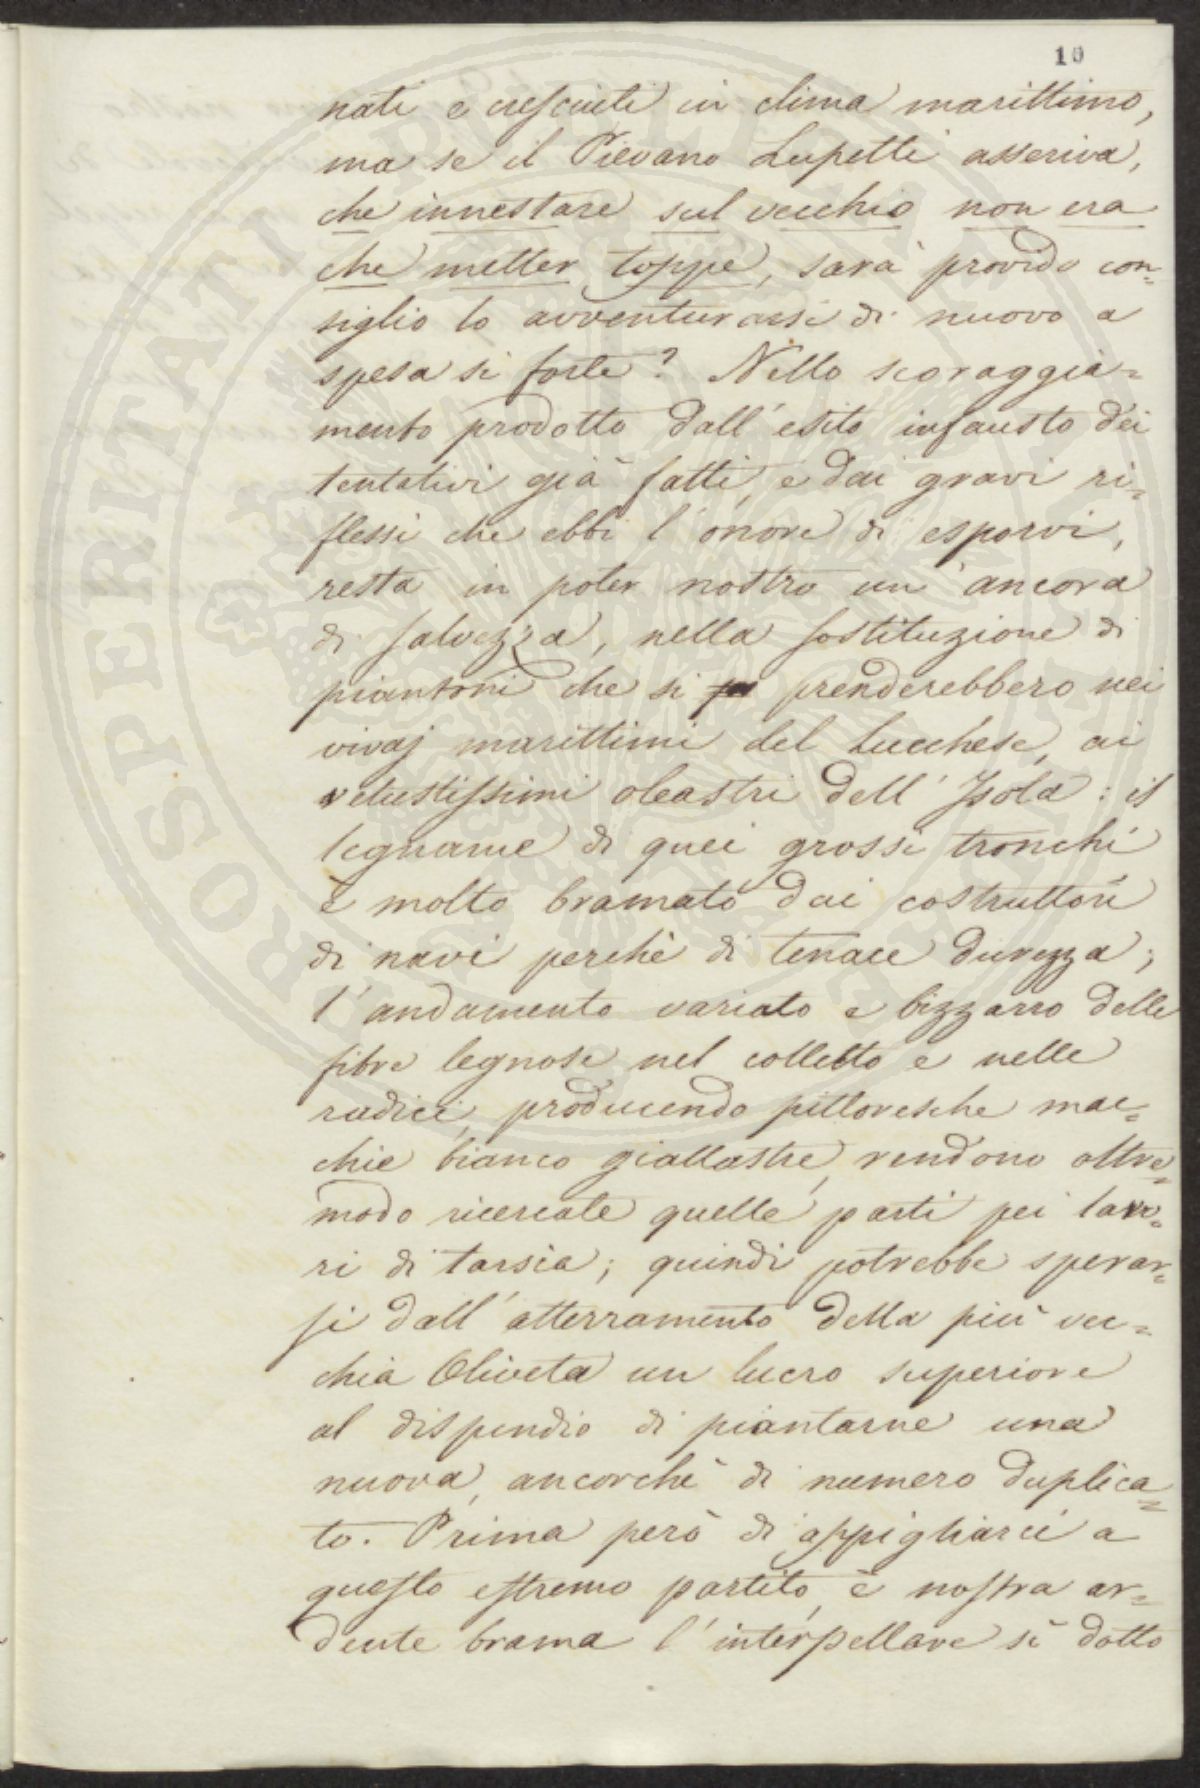 10
nati e cresciuti in clima marittimo,
ma se il Pievano Lupetti asseriva,
che innestare sul vecchio non era
che metter toppe, sarà provido con=
siglio lo avventurarsi di nuovo a
spesa sì forte? Nello scoraggia=
mento prodotto dall'esito infausto dei
tentativi già fatti, e dai gravi ri=
flessi che ebbi l'onore di esporvi,
resta in poter nostro un'ancora
di salvezza, nella sostituzione di
piantoni che si prenderebbero nei
vivaj marittimi del Lucchese, ai
vetustissimi oleastri dell'Isola: il
legname di quei grossi tronchi
è molto bramato dai costruttori
di navi perchè di tenace durezza;
l'andamento variato e bizzarro delle
fibre legnose nel colletto e nelle
radici, producendo pittoresche mac=
chie bianco giallastre, rendono oltre=
modo ricercate quelle parti pei lavo=
ri di tarsia; quindi potrebbe sperar=
si dall'atterramento della più vec=
chia Oliveta un lucro superiore
al dispendio di piantarne una
nuova, ancorchè di numero duplica=
to. Prima però di appigliarci a
questo estremo partito, è nostra ar=
dente brama l'interpellare sì dotto
PROSPERITATI PUBLICAE AUGENDAE